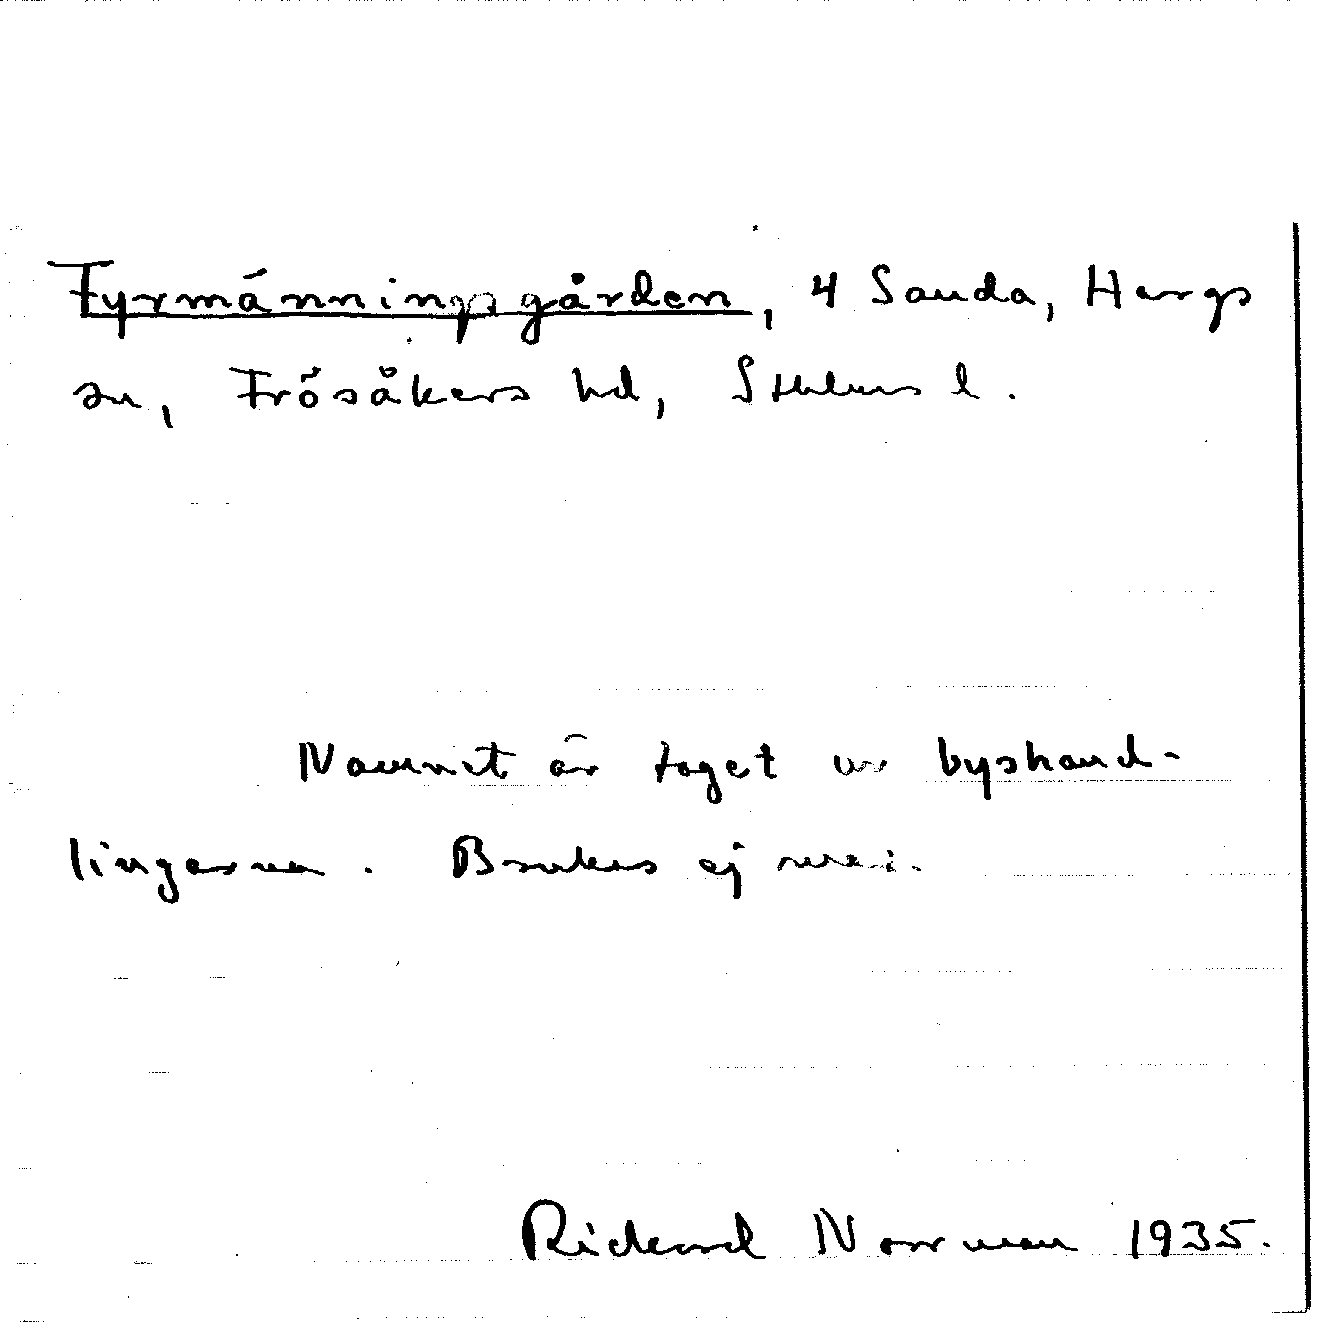 Fyrmänningsgården, 4 Sanda, Hargs
sn, Frösåkers hd, Sthlms l.
Namnet är taget ur byshand-
lingarna. Brukas ej mer.
Rickard Norrman 1935.